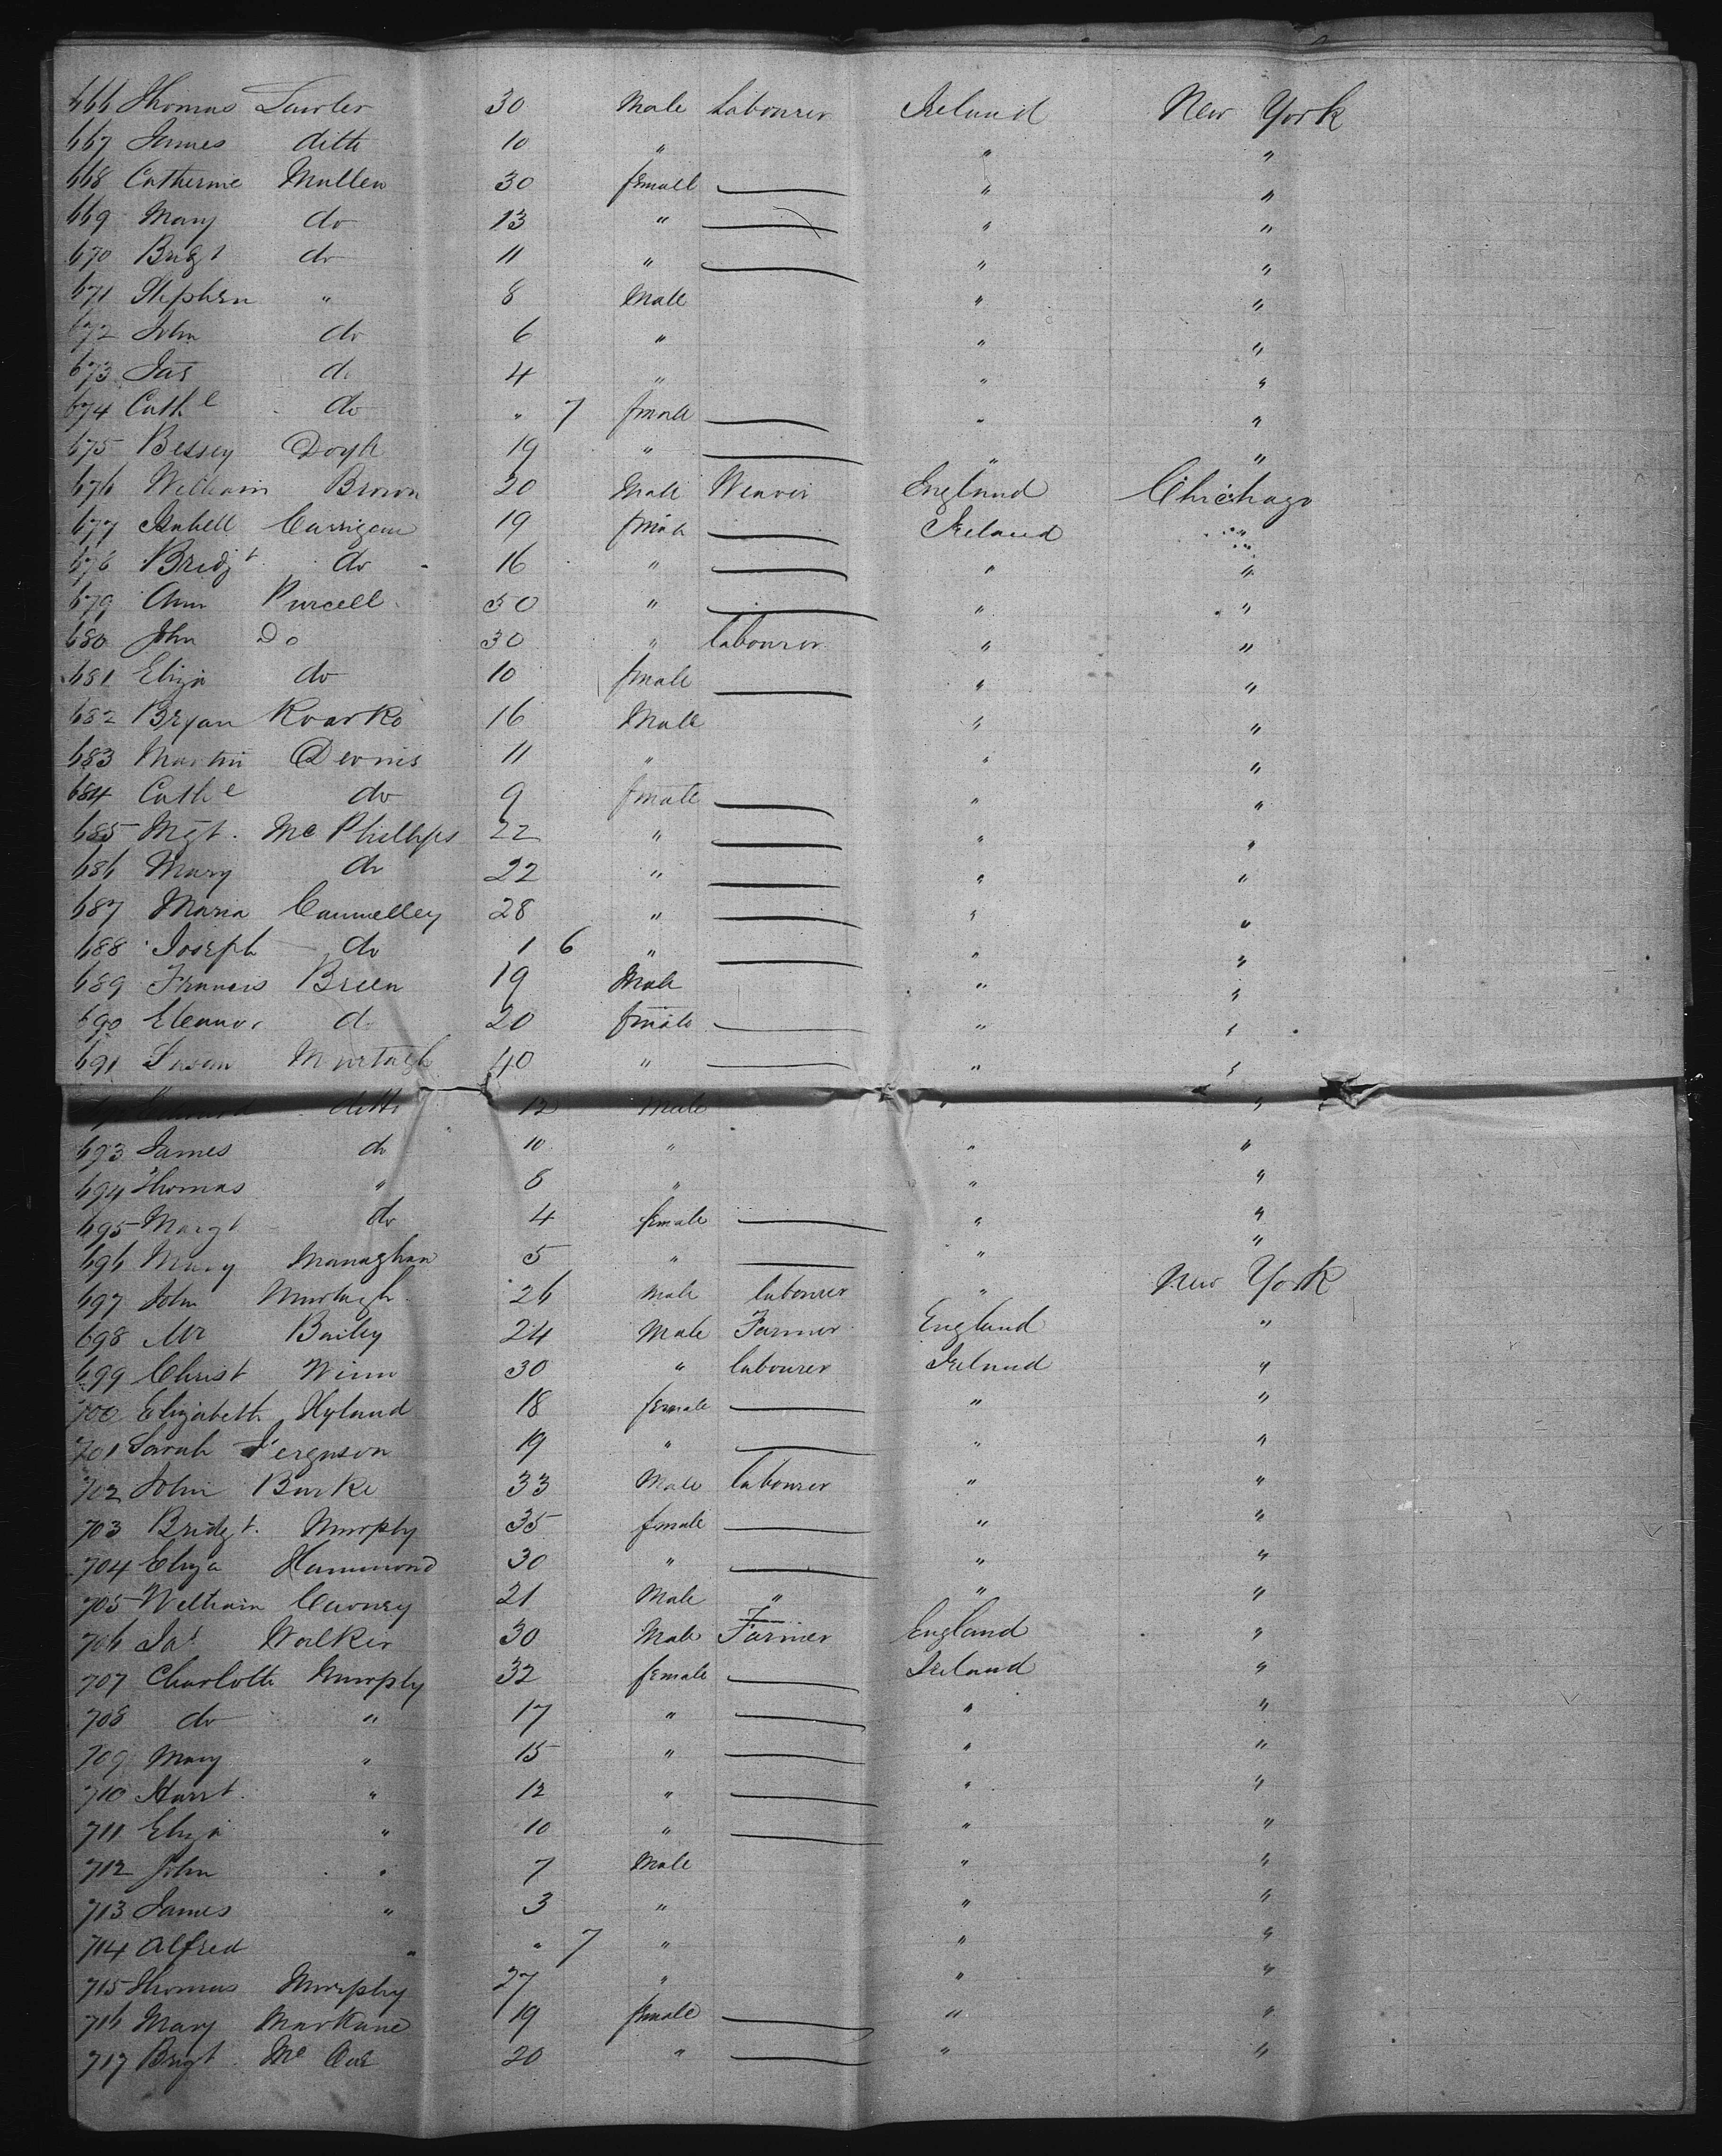 666 Thomas Lawler 30 Male Labourer Ireland New York
667 James ditto 10 " " "
668 Catherine Mullen 30 female — " "
669 Mary do 13 " — " "
670 Brigt do 11 " — " "
671 Stephen " 8 Male " "
672 John do 6 " " "
673 Jas do 4 " " "
674 Cathe do " 7 female — " "
675 Bessey Doyle 19 " — " "
676 William Brown 20 Male Weaver England Chichago
677 Isabell Carrigan 19 female — Ireland "
678 Bridgt do 16 " — " "
679 Ann Purcell 50 " — " "
680 John Do 30 " labourer " "
681 Eliza do 10 female — " "
682 Bryan Roarke 16 Male " "
683 Martin Dennis 11 " " "
684 Cathe do 9 female — " "
685 Mgt. Mc Phillips 22 " — " "
686 Mary do 22 " — " "
687 Maria Cannelley 28 " — " "
688 Joseph do 1 6 " — " "
689 Francis Breen 19 Male " "
690 Eleanor do 20 female — " "
691 Susan Murtagh 40 " — " "
ditto 12 Male " "
693 James do 10 " " "
694 Thomas " 8 " " "
695 Margt do 4 female — " "
696 Mary Managhan 5 " — " "
697 John Murtagh 26 Male labourer " New York
698 Mr Bailey 24 Male Farmer England "
699 Christ Winn 30 " labourer Ireland "
700 Elizabeth Hyland 18 female — " "
701 Sarah Ferguson 19 " — " "
702 John Burke 33 Male labourer " "
703 Bridgt. Murphy 35 female — " "
704 Eliza Hammond 30 " — " "
705 William 21 Male " " "
706 Jas Walker 30 Male Farmer England "
707 Charlotte Murphy 32 female — Ireland "
708 do " 17 " — " "
709 Mary " 15 " — " "
710 Harrt. " 12 " — " "
711 Eliza " 10 " — " "
712 John " 7 Male " "
713 James " 3 " " "
714 Alfred " " 7 " " "
715 Thomas Murphy 27 " " "
716 Mary Markane 19 female — " "
717 Brigt. Mc 20 " — " "